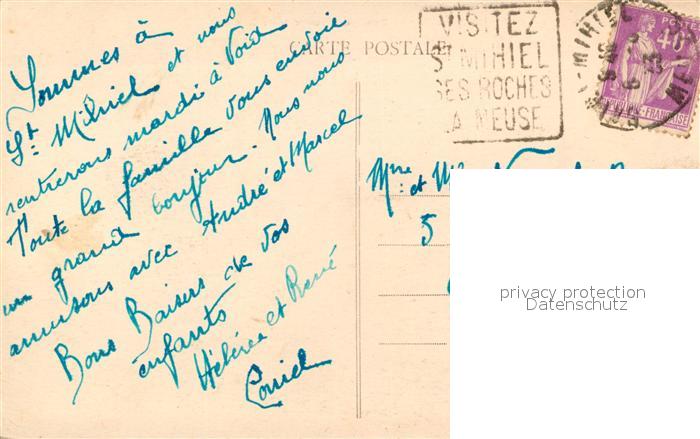 CARTE POSTALE
VISITEZ
ST MIHIEL
SES ROCHES
LA MEUSE
POSTES
40
Sommes à
St. Mihiel et nous
rentrerons mardi à Void
Toute la famille vous envoie
un grand bonjour. Nous nous
amusons avec André et Marcel
Bons Baisers de vos
enfants
Hélène et René
Mme et
5
privacy protection
Datenschutz